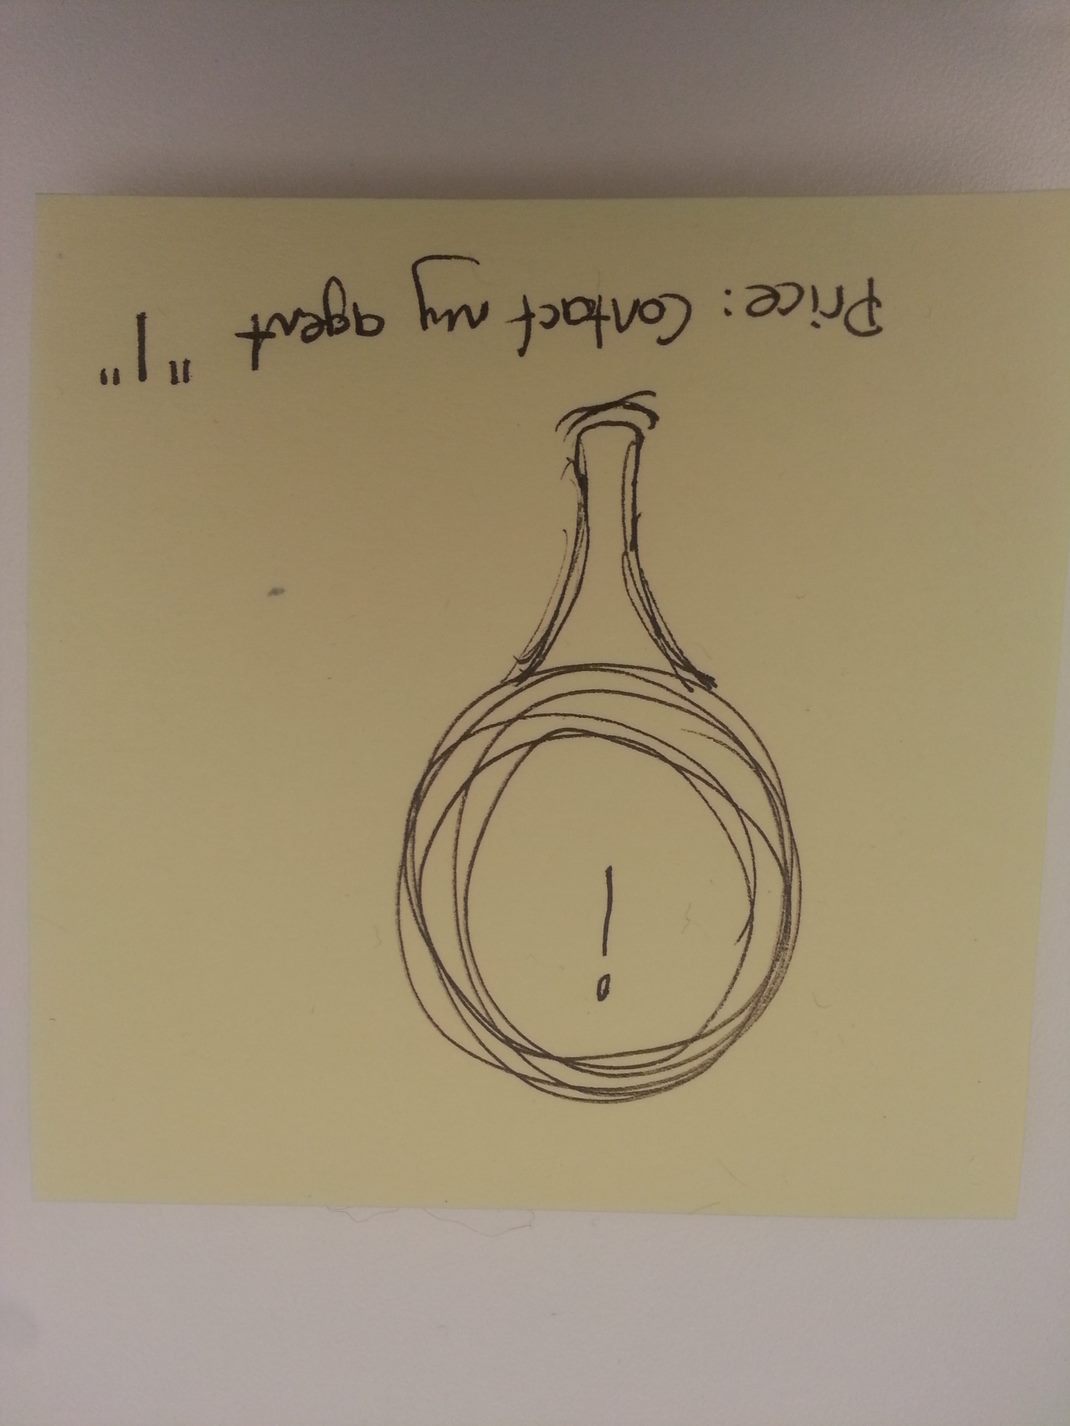 i
"l"
Price: Contact my agent